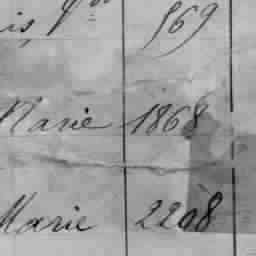 is, Vve 569
Marie 1868
Marie 2208